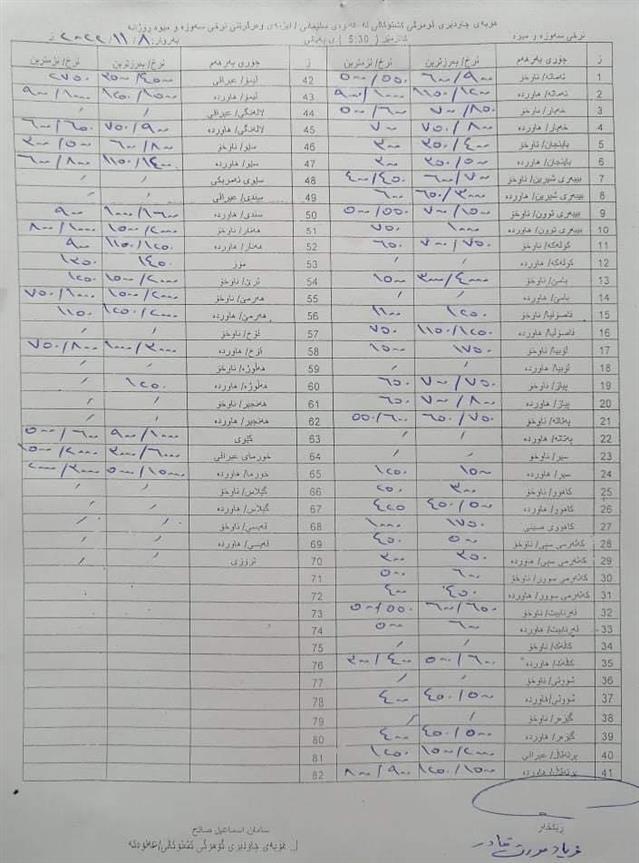 نرخی سەوزە و میوە کاتژمێر ( 5:30 ) بەروار: ٨ / ١١ / ٢٠٢٢
ژ جۆری بەرهەم نرخ/ بەرزترین نرخ/ نزمترین ژ جۆری بەرهەم نرخ/ بەرزترین نرخ/ نزمترین
1 تەماتە/ ناوخۆ ٩٠٠/٦٠٠ ٥٥٠/٥٠٠ 42 لیمۆ/ عیراقی
2 تەماتە/ هاوردە ١٢٠٠/١١٥٠ ١٠٠٠/٩٠٠ 43 لیمۆ/ هاوردە ١٥٠٠/١٢٥٠ ١٠٠٠/٩٠٠
3 خەیار/ ناوخۆ ٨٥٠/٧٠٠ ٦٠٠/٥٠٠ 44 لالەنگی/ عیراقی / /
4 خەیار/ هاوردە ٨٠٠/٧٥٠ ٧٠٠ 45 لالەنگی/ هاوردە ٩٠٠/٧٥٠ ٦٥٠/٦٠٠
5 باینجان/ ناوخۆ ٤٠٠/٣٥٠ ٣٠٠ 46 سێو/ ناوخۆ ٨٠٠/٦٠٠ ٥٠٠/٣٠٠
6 باینجان/ هاوردە ٥٠٠/٣٥٠ ٣٠٠ 47 سێو/ هاوردە ١٤٠٠/١١٥٠ ٨٠٠/٦٠٠
7 بیبەری شیرین/ ناوخۆ ٧٠٠/٦٠٠ ٤٥٠/٤٠٠ 48 سێوی ئەمریکی / /
8 بیبەری شیرین/ هاوردە ٣٠٠٠/٦٥٠ ٦٠٠ 49 سیندی/ عیراقی / /
9 بیبەری توون/ ناوخۆ ١٥٠٠/٧٠٠ ٥٥٠/٥٠٠ 50 سیندی/ هاوردە ١٦٠٠/١٠٠٠ ٩٠٠
10 بیبەری توون/ هاوردە ١٠٠٠ ٧٥٠ 51 هەنار/ ناوخۆ ٢٠٠٠/١٥٠٠ ١٠٠٠/٨٠٠
11 کولەکە/ ناوخۆ ٧٥٠/٧٠٠ ٦٥٠ 52 هەنار/ هاوردە ١٢٥٠/١١٥٠ ٩٠٠
12 کولەکە/ هاوردە / / 53 مۆز ١٤٥٠ ١٣٥٠
13 بامێ/ ناوخۆ ٤٠٠٠/٣٠٠٠ ١٥٠٠ 54 ترێ/ ناوخۆ ٢٠٠٠/١٥٠٠ ١٢٥٠
14 بامێ/ هاوردە / / 55 هەرمێ/ ناوخۆ ٢٠٠٠/١٥٠٠ ١٠٠٠/٧٥٠
15 فاسۆلیا/ ناوخۆ ١٢٥٠ ١١٠٠ 56 هەرمێ/ هاوردە ٢٠٠٠/١٢٥٠ ١١٥٠
16 فاسۆلیا/ هاوردە ١٢٥٠/١١٥٠ ٧٥٠ 57 قۆخ/ ناوخۆ / /
17 لۆبیا/ ناوخۆ ١٧٥٠ ١٥٠٠ 58 قۆخ/ هاوردە ٣٠٠٠/١٠٠٠ ٨٠٠/٧٥٠
18 لۆبیا/ هاوردە / / 59 هەڵوژە/ ناوخۆ / /
19 پیاز/ ناوخۆ ٧٥٠/٧٠٠ ٦٥٠ 60 هەڵوژە/ هاوردە ١٢٥٠ /
20 پیاز/ هاوردە ٨٠٠/٧٠٠ ٦٥٠ 61 هەنجیر/ ناوخۆ / /
21 پەتاتە/ ناوخۆ ٧٥٠/٦٥٠ ٦٠٠/٥٥٠ 62 هەنجیر/ هاوردە / /
22 پەتاتە/ هاوردە / / 63 کێوی ١٠٠٠/٩٠٠ ٦٠٠/٥٠٠
23 سیر/ ناوخۆ / / 64 خورمای عیراقی ٦٠٠٠/٣٠٠٠ ٢٠٠٠/١٥٠٠
24 سیر/ هاوردە ١٥٠٠ ١٢٥٠ 65 خورما/ هاوردە ١٥٠٠٠/٥٠٠٠ ٣٠٠٠/٢٠٠٠
25 کاهوو/ ناوخۆ ٣٠٠ ٢٥٠ 66 گێلاس/ ناوخۆ / /
26 کاهوو/ هاوردە ٥٠٠/٤٥٠ ٤٢٥ 67 گێلاس/ هاوردە / /
27 کاهووی صینی ١٧٥٠ ١٠٠٠ 68 قەیسی/ ناوخۆ / /
28 کەلەرمی سپی/ ناوخۆ ٥٠٠ ٤٥٠ 69 قەیسی/ هاوردە / /
29 کەلەرمی سپی/ هاوردە ٣٥٠ ٣٠٠ 70 تروزی / /
30 کەلەرمی سوور/ ناوخۆ ٦٠٠ ٥٠٠ 71
31 کەلەرمی سوور/ هاوردە ٤٥٠ ٤٠٠ 72
32 قەرنابیت/ ناوخۆ ٦٥٠/٦٠٠ ٥٥٠/٥٠٠ 73
33 قەرنابیت/ هاوردە ٦٠٠ ٥٠٠ 74
34 کاڵەک/ ناوخۆ / / 75
35 کاڵەک/ هاوردە ٦٠٠/٥٠٠ ٤٠٠/٣٠٠ 76
36 شووتی/ ناوخۆ / / 77
37 شووتی/هاوردە ٥٠٠/٤٥٠ ٤٠٠ 78
38 گێزەر/ ناوخۆ / / 79
39 گێزەر/ هاوردە ٥٠٠/٤٥٠ ٤٠٠ 80
40 پرتەقاڵ/ عیراقی ٢٠٠٠/١٥٠٠ ١٢٥٠ 81
41 پرتەقاڵ/ هاوردە ١٥٠٠/١٢٥٠ ٩٠٠/٨٠٠ 82
ڕێکخار
سامان اسماعیل صالح